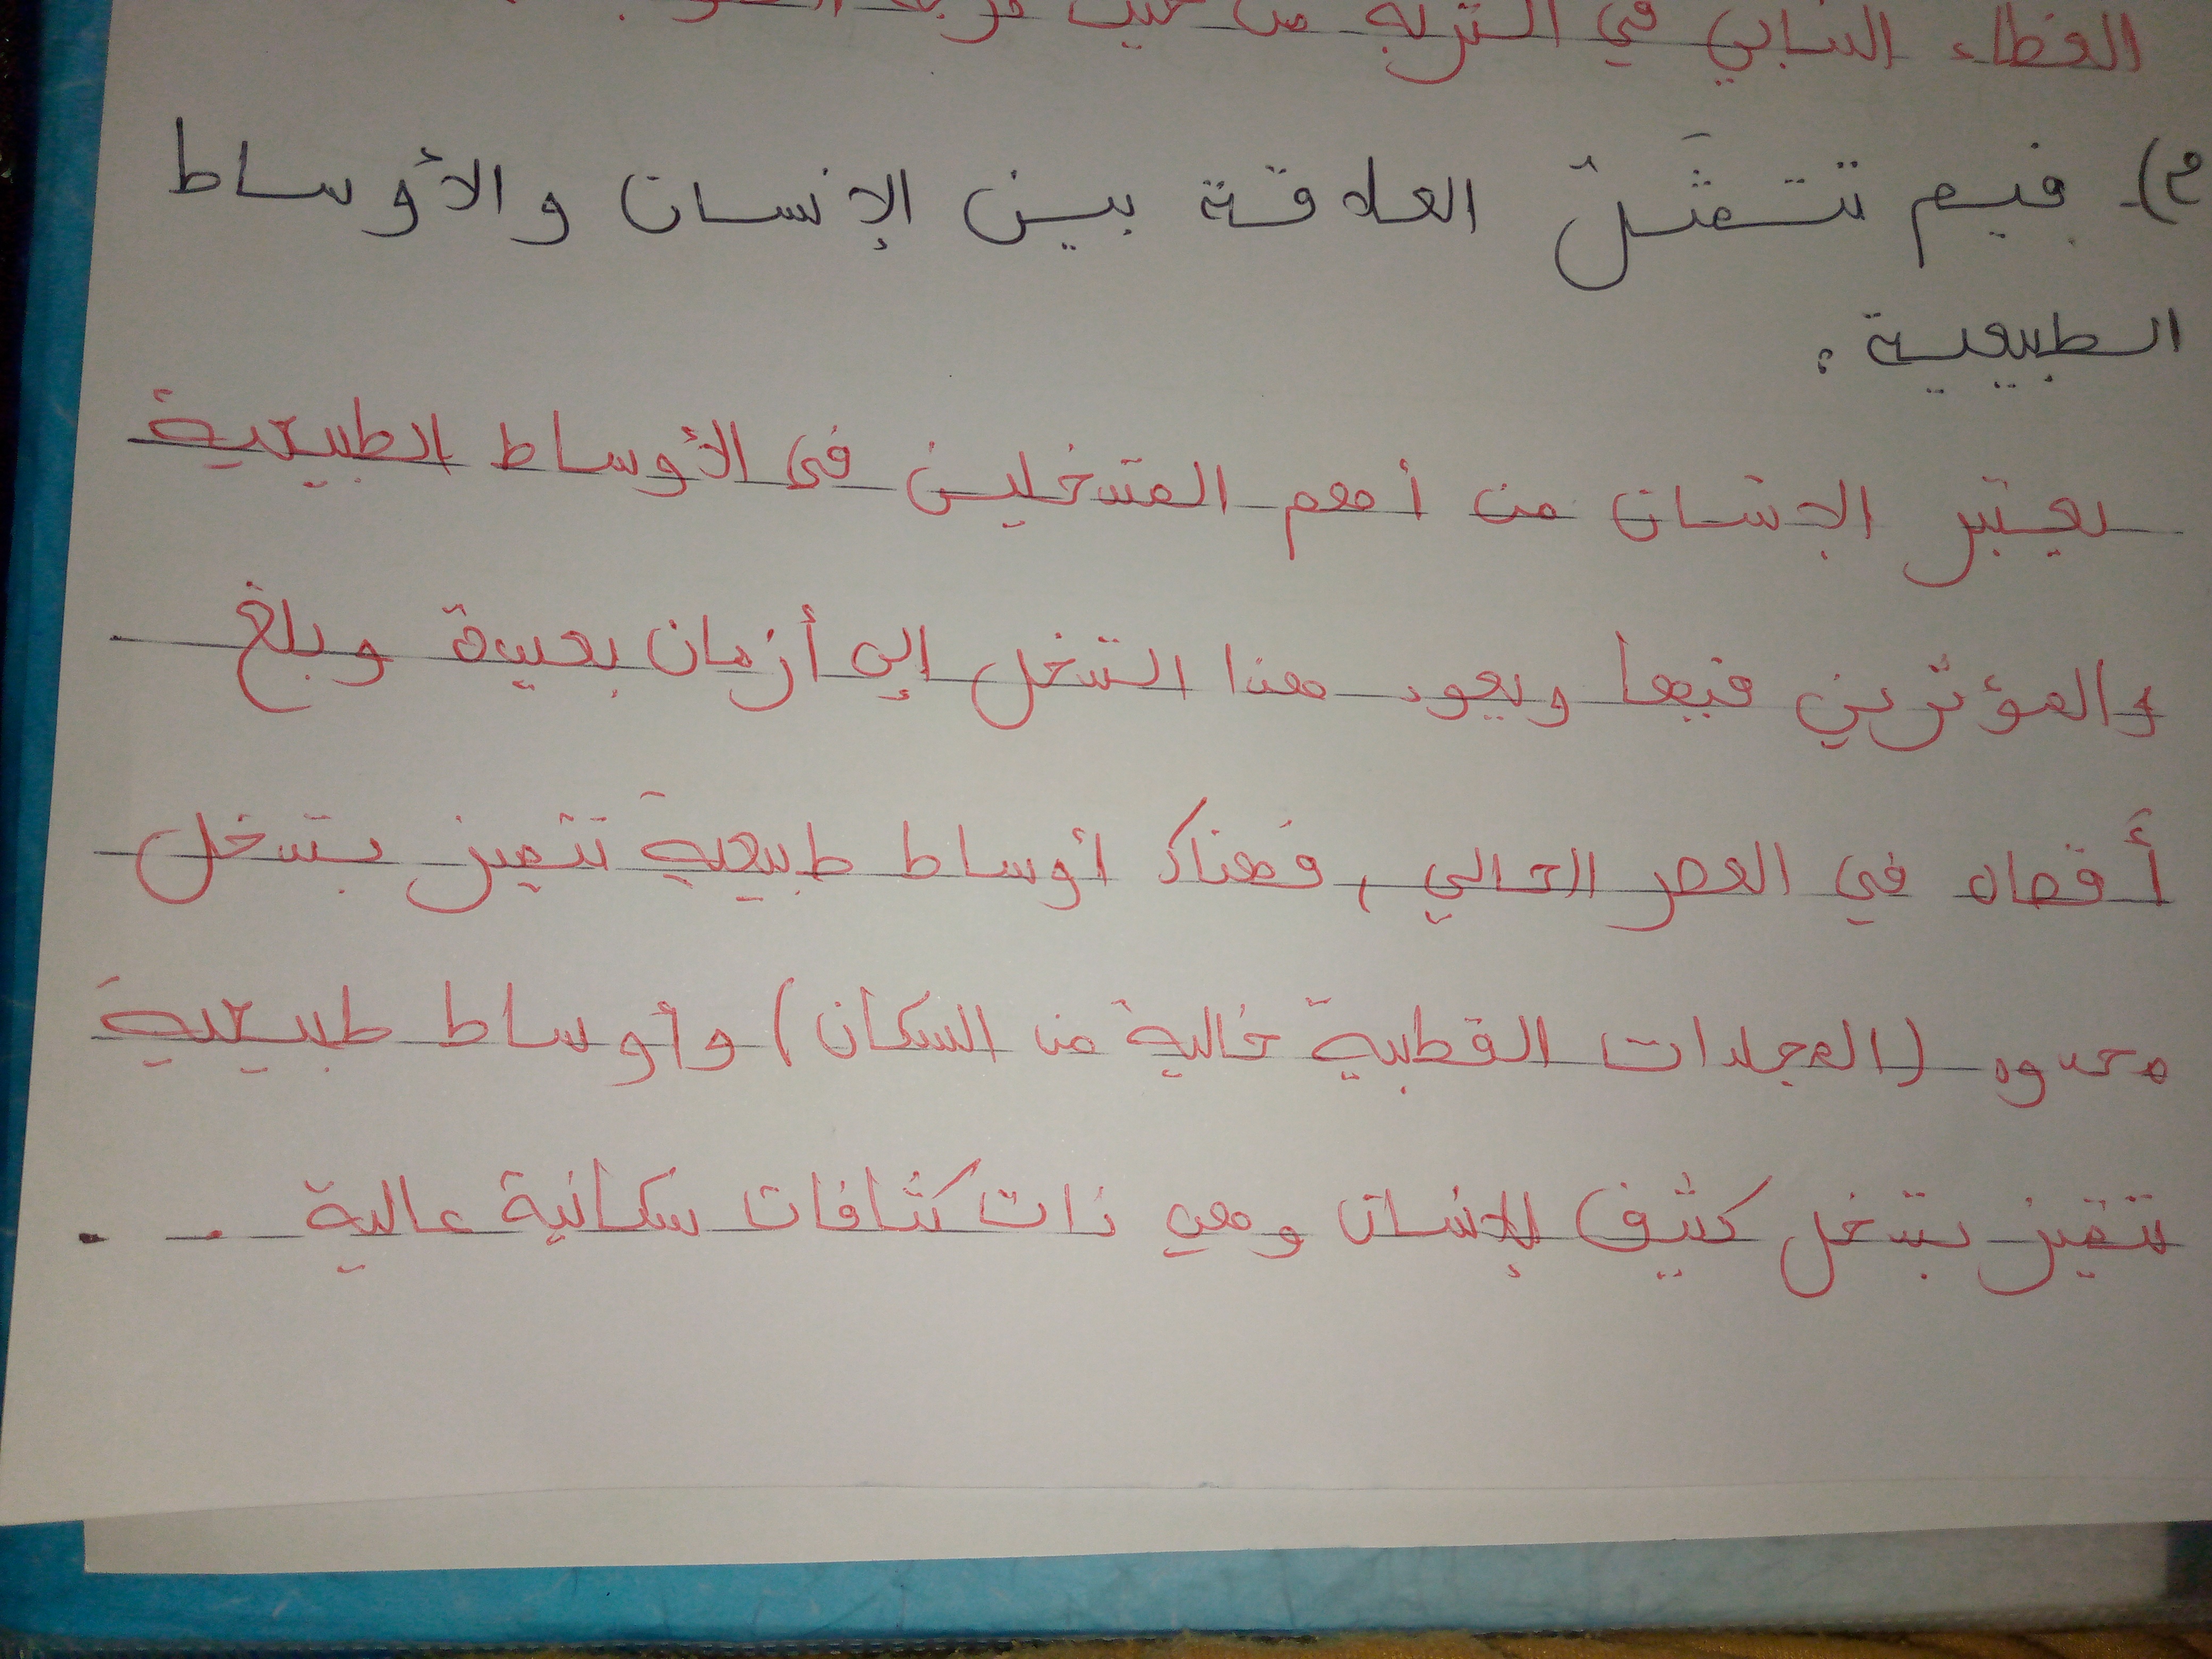 الغطاء النباتي في التربة من حيث
م)- فيم تتمثّل العلاقة بين الإنسان والأوساط
الطبيعية .
يعتبر الإنسان من أهم المتدخلين في الأوساط الطبيعية
والمؤثرين فيها ويعود هذا التدخل إلى أزمان بعيدة وبلغ
أقصاه في العصر الحالي ، فهناك أوساط طبيعية تتميز بتدخل
محدود (المجلدات القطبية خالية من السكان) وأوساط طبيعية
تتميز بتدخل كثيف للإنسان وهي ذات كثافات سكانية عالية . .